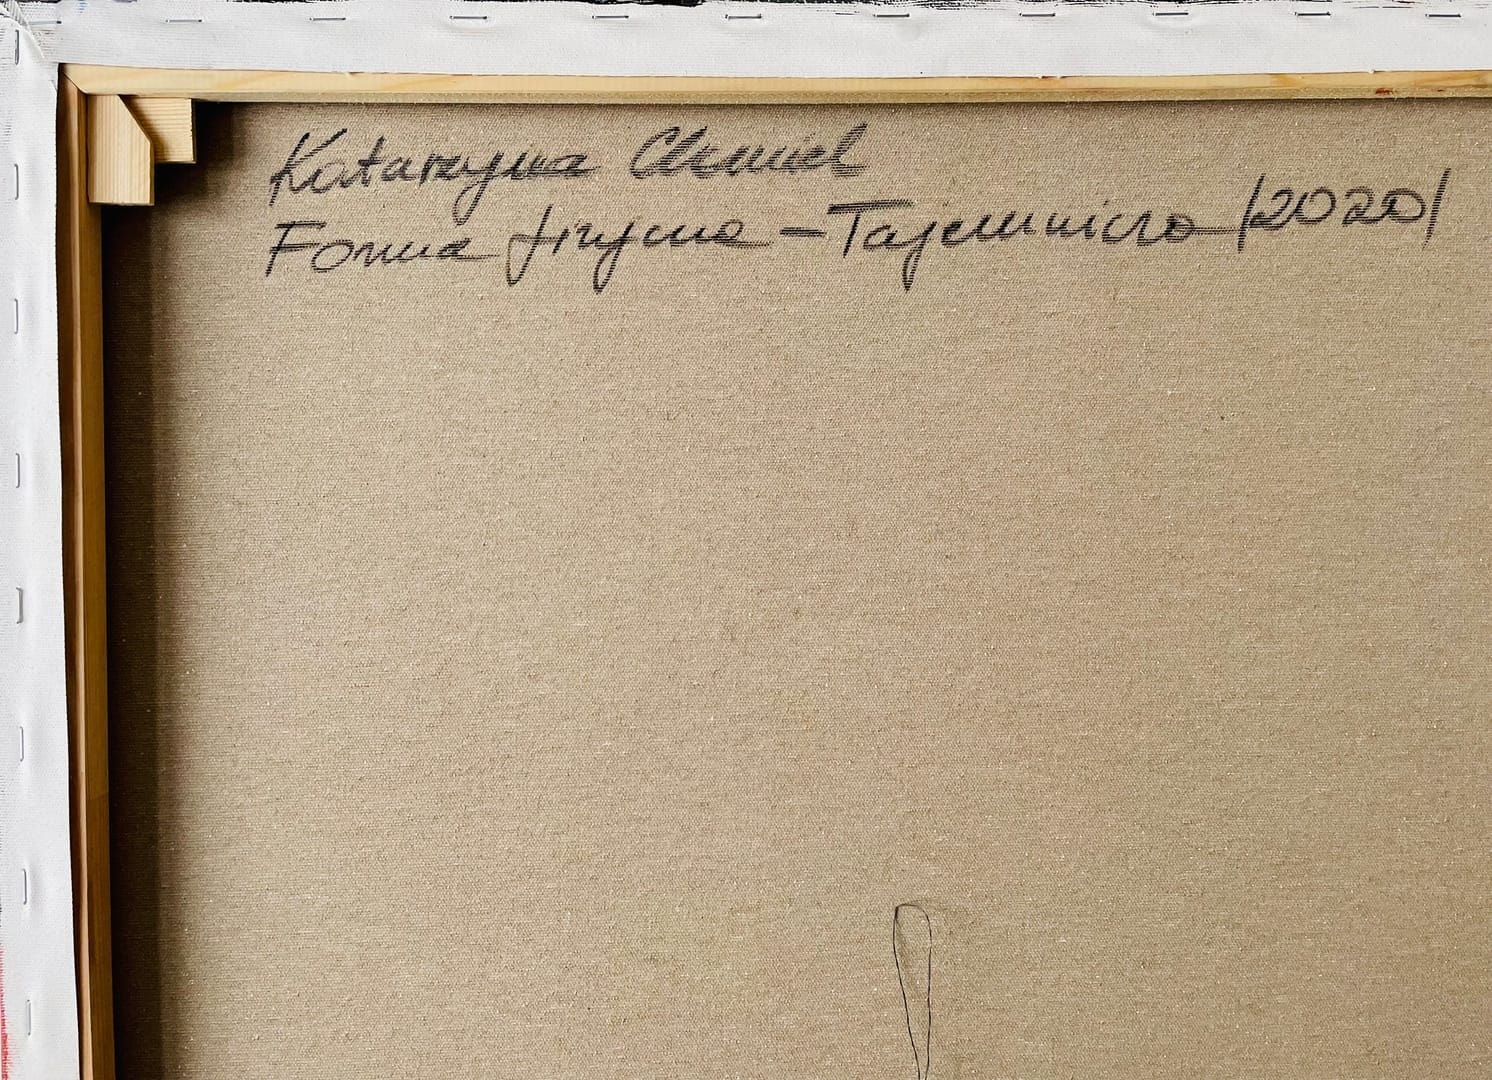 Katarzyna Chmiel
Forma fizyczna - Tajemnicza /2020/